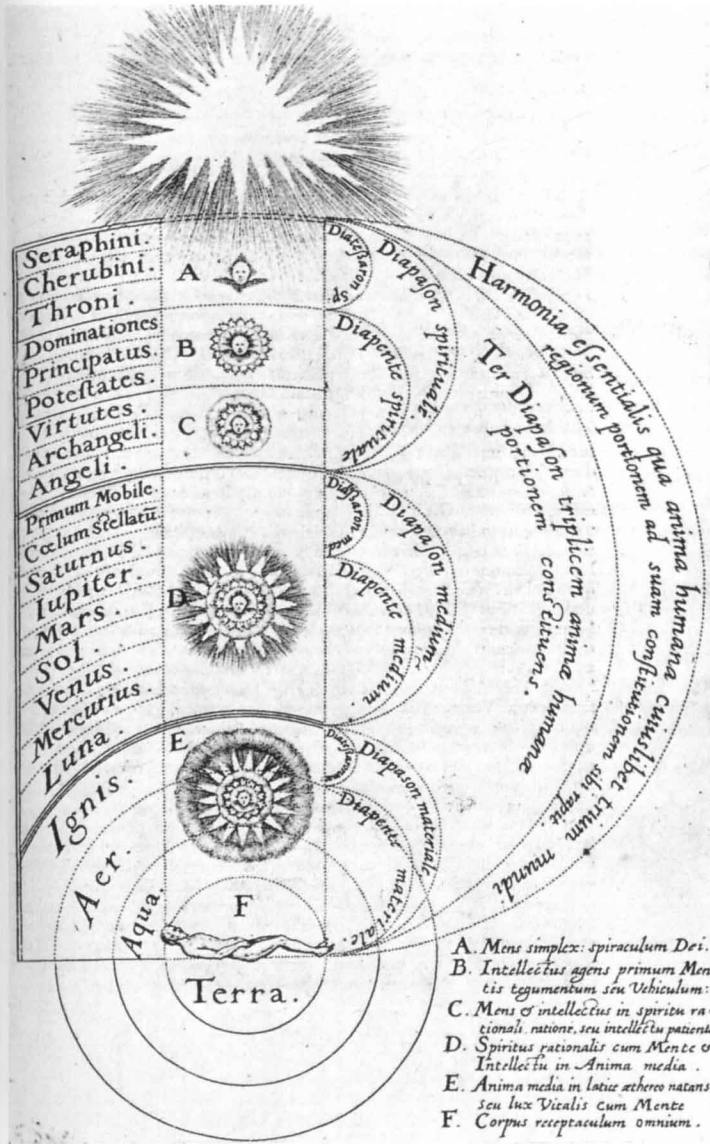 Seraphini.
Cherubini.
Throni.
Dominationes
Principatus.
Potestates.
Virtutes.
Archangeli.
Angeli.
Primum Mobile.
Cœlum Stellatũ.
Saturnus.
Iupiter.
Mars.
Sol.
Venus.
Mercurius
Luna.
Ignis.
Aer.
Aqua.
Terra.
A
B
C
D
E
F
Diateſſaron sp.
Diapaſon spirituale.
Diapente spirituale
Diateſſaron med.
Diapaſon medium.
Diapente medium.
Diapason materiale
Diapente materiale.
Ter Diapaſon triplicem animæ humanæ
portionem conſtituens.
Harmonia eſſentialis qua anima humana cuiuslibet trium mundi
regionum portionem ad suam conſtitutionem sibi rapit.
A. Mens simplex: spiraculum Dei.
B. Intellectus agens primum Men
tis tegumentum seu Vehiculum:
C. Mens & intellectus in spiritu ra-
tionali, ratione, seu intellectu patiente
D. Spiritus rationalis cum Mente &
Intellectu in Anima media.
E. Anima media in latice æthereo natans
seu lux Vitalis cum Mente
F. Corpus receptaculum omnium.